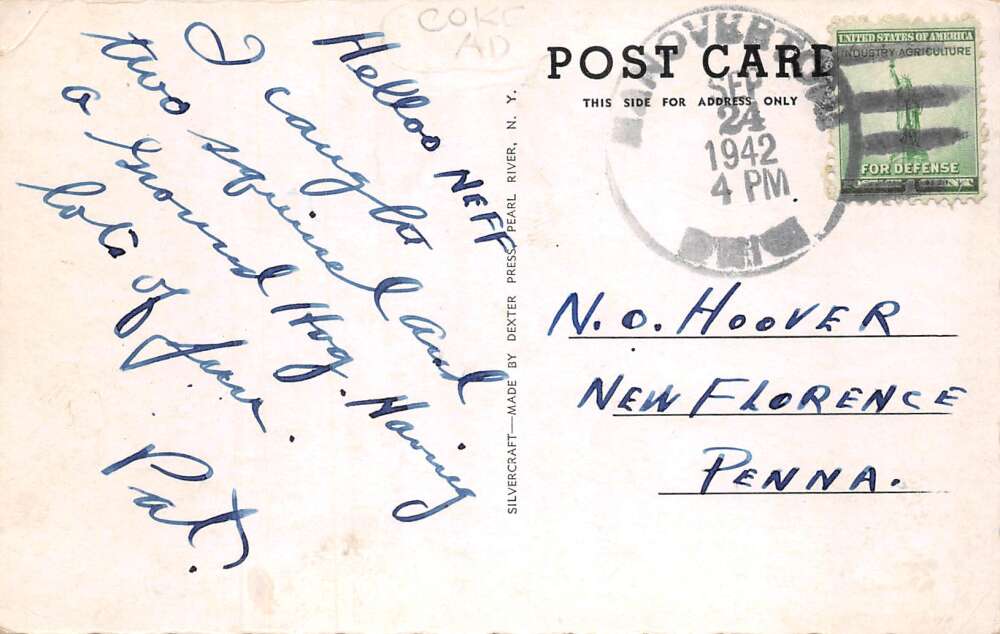 COKE
AD
Helloo NEFF
I caught
two squirrel and
a Ground Hog. Having
lots of fun.
Pat.
SILVERCRAFT—MADE BY DEXTER PRESS, PEARL RIVER, N. Y.
POST CARD
THIS SIDE FOR ADDRESS ONLY
SEP
24
1942
4 PM
OHIO
UNITED STATES OF AMERICA
INDUSTRY AGRICULTURE
FOR DEFENSE
N. O. HOOVER
NEW FLORENCE
PENNA.